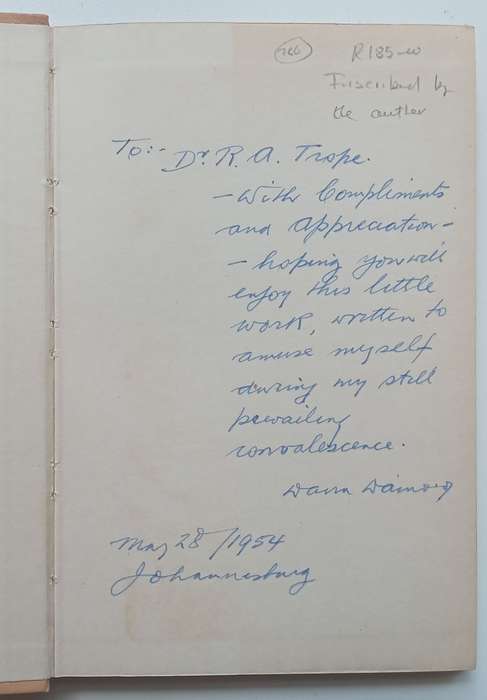 R185-00
Inscribed by
the author
To:- Dr. R. A. Trope.
- With Compliments
and Appreciation -
- hoping you will
enjoy this little
work, written to
amuse myself
during my still
prevailing
convalescence.
May 28/1954
Johannesburg